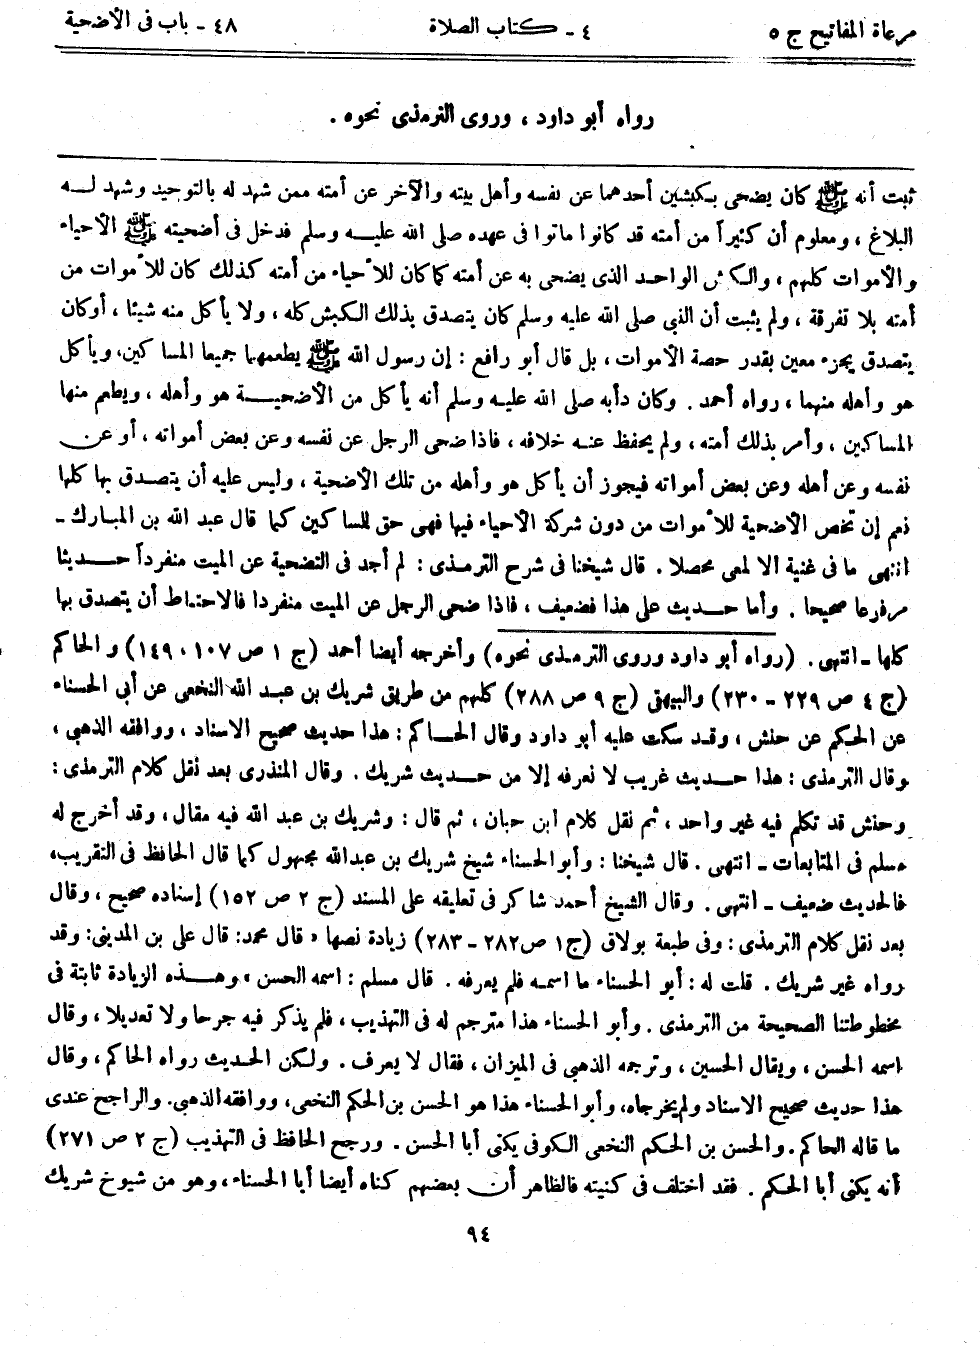 مرعاة المفاتيح ج ٥
٤ ـ كتاب الصلاة
٤٨ ـ باب فى الأضحية
رواه أبو داود ، وروى الترمذى نحوه .
ثبت أنه ﷺ كان يضحى بكبشين أحدهما عن نفسه وأهل بيته والآخر عن أمته ممن شهد له بالتوحيد وشهد لــه
البلاغ ، ومعلوم أن كثيراً من أمته قد كانوا ماتوا فى عهده صلى الله عليــه وسلم فدخل فى أضحيته ﷺ الأحياء
والأموات كلهم ، والكبش الواحد الذى يضحى به عن أمته كما كان للأحياء من أمته كذلك كان للأموات من
أمته بلا تفرقة ، ولم يثبت أن النبى صلى الله عليه وسلم كان يتصدق بذلك الكبش كله ، ولا يأكل منه شيئا ، أو كان
يتصدق بجزء معين بقدر حصة الأموات ، بل قال أبو رافع : إن رسول الله ﷺ يطعمهما جميعا المساكين، ويأكل
هو وأهله منهما ، رواه أحمد . وكان دأبه صلى الله عليه وسلم أنه يأكل من الأضحيــة هو وأهله ، ويطعم منها
المساكين ، وأمر بذلك أمته ، ولم يحفظ عنــه خلافه ، فاذا ضحى الرجل عن نفسه وعن بعض أمواته ، أو عن
نفسه وعن أهله وعن بعض أمواته فيجوز أن يأكل هو وأهله من تلك الأضحية ، وليس عليه أن يتصدق بها كلها
نعم إن تخص الأضحية للأموات من دون شركة الأحياء فيها فهى حق للمساكين كما قال عبد الله بن المبارك ـ
انتهى ما فى غنية الألمعى محصلا . قال شيخنا فى شرح الترمـذى : لم أجد فى التضحية عن الميت منفرداً حــديثا
مرفوعا صحيحا . وأما حــديث على هذا فضعيف ، فاذا ضحى الرجل عن الميت منفردا فالاحتياط أن يتصدق بها
كلها ـ انتهى . (رواه أبو داود وروى الترمـذى نحوه) وأخرجه أيضا أحمد (ج ١ ص ١٠٧ ، ١٤٩) والحاكم
(ج ٤ ص ٢٢٩ ـ ٢٣٠) والبيهقى (ج ٩ ص ٢٨٨) كلهم من طريق شريك بن عبـد الله النخعى عن أبى الحسناء
عن الحكم عن حنش ، وقـد سكت عليه أبو داود وقال الحــاكم : هذا حديث صحيح الاسناد ، ووافقه الذهبى ،
وقال الترمذى : هذا حــديث غريب لا نعرفه إلا من حــديث شريك . وقال المنذرى بعد نقل كلام الترمذى :
وحنش قد تكلم فيه غير واحد ، ثم نقل كلام ابن حبان ، ثم قال : وشريك بن عبد الله فيه مقال ، وقد أخرج له
مسلم فى المتابعات ـ انتهى . قال شيخنا : وأبو الحسناء شيخ شريك بن عبدالله مجهول كما قال الحافظ فى التقريب،
فالحديث ضعيف ـ انتهى . وقال الشيخ أحمد شاكر فى تعليقه على المسند (ج ٢ ص ١٥٢) إسناده صحيح ، وقال
بعد نقل كلام الترمذى : وفى طبعة بولاق (ج١ ص٢٨٢ ـ ٢٨٣) زيادة نصها « قال محمد: قال على بن المدينى: وقد
رواه غير شريك . قلت له : أبو الحسناء ما اسمـه فلم يعرفه . قال مسلم : اسمه الحسن » وهــذه الزيادة ثابتة فى
مخطوطتنا الصحيحة من الترمذى . وأبو الحسناء هذا مترجم له فى التهذيب ، فلم يذكر فيه جرحا ولا تعديلا ، وقال
اسمه الحسن ، ويقال الحسين ، وترجمه الذهبى فى الميزان ، فقال لا يعرف . ولكن الحـديث رواه الحاكم ، وقال
هذا حديث صحيح الاسناد ولم يخرجاه، وأبو الحسناء هذا هو الحسن بن الحكم النخعى، ووافقه الذهبى. والراجح عندى
ما قاله الحاكم . والحسن بن الحـكم النخعى الكوفى يكنى أبا الحسن . ورجح الحافظ فى التهذيب (ج ٢ ص ٢٧١)
أنه يكنى أبا الحكم . فقد اختلف فى كنيته فالظاهر أن بعضهم كناه أيضا أبا الحسناء ، وهو من شيوخ شريك
٩٤